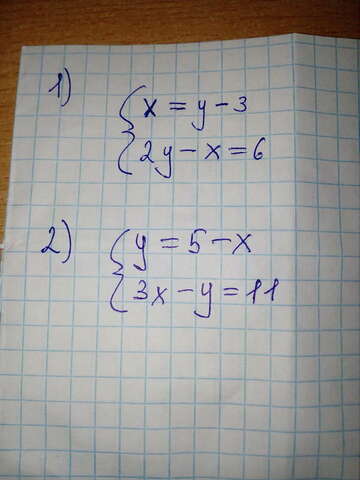 1)
x = y - 3
2y - x = 6
2)
y = 5 - x
3x - y = 11